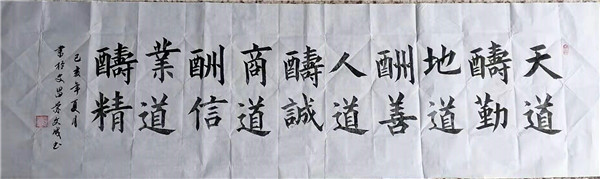 天道
醻勤
地道
酬善
人道
醻誠
商道
酬信
業道
醻精
己亥年夏月
書於文昌